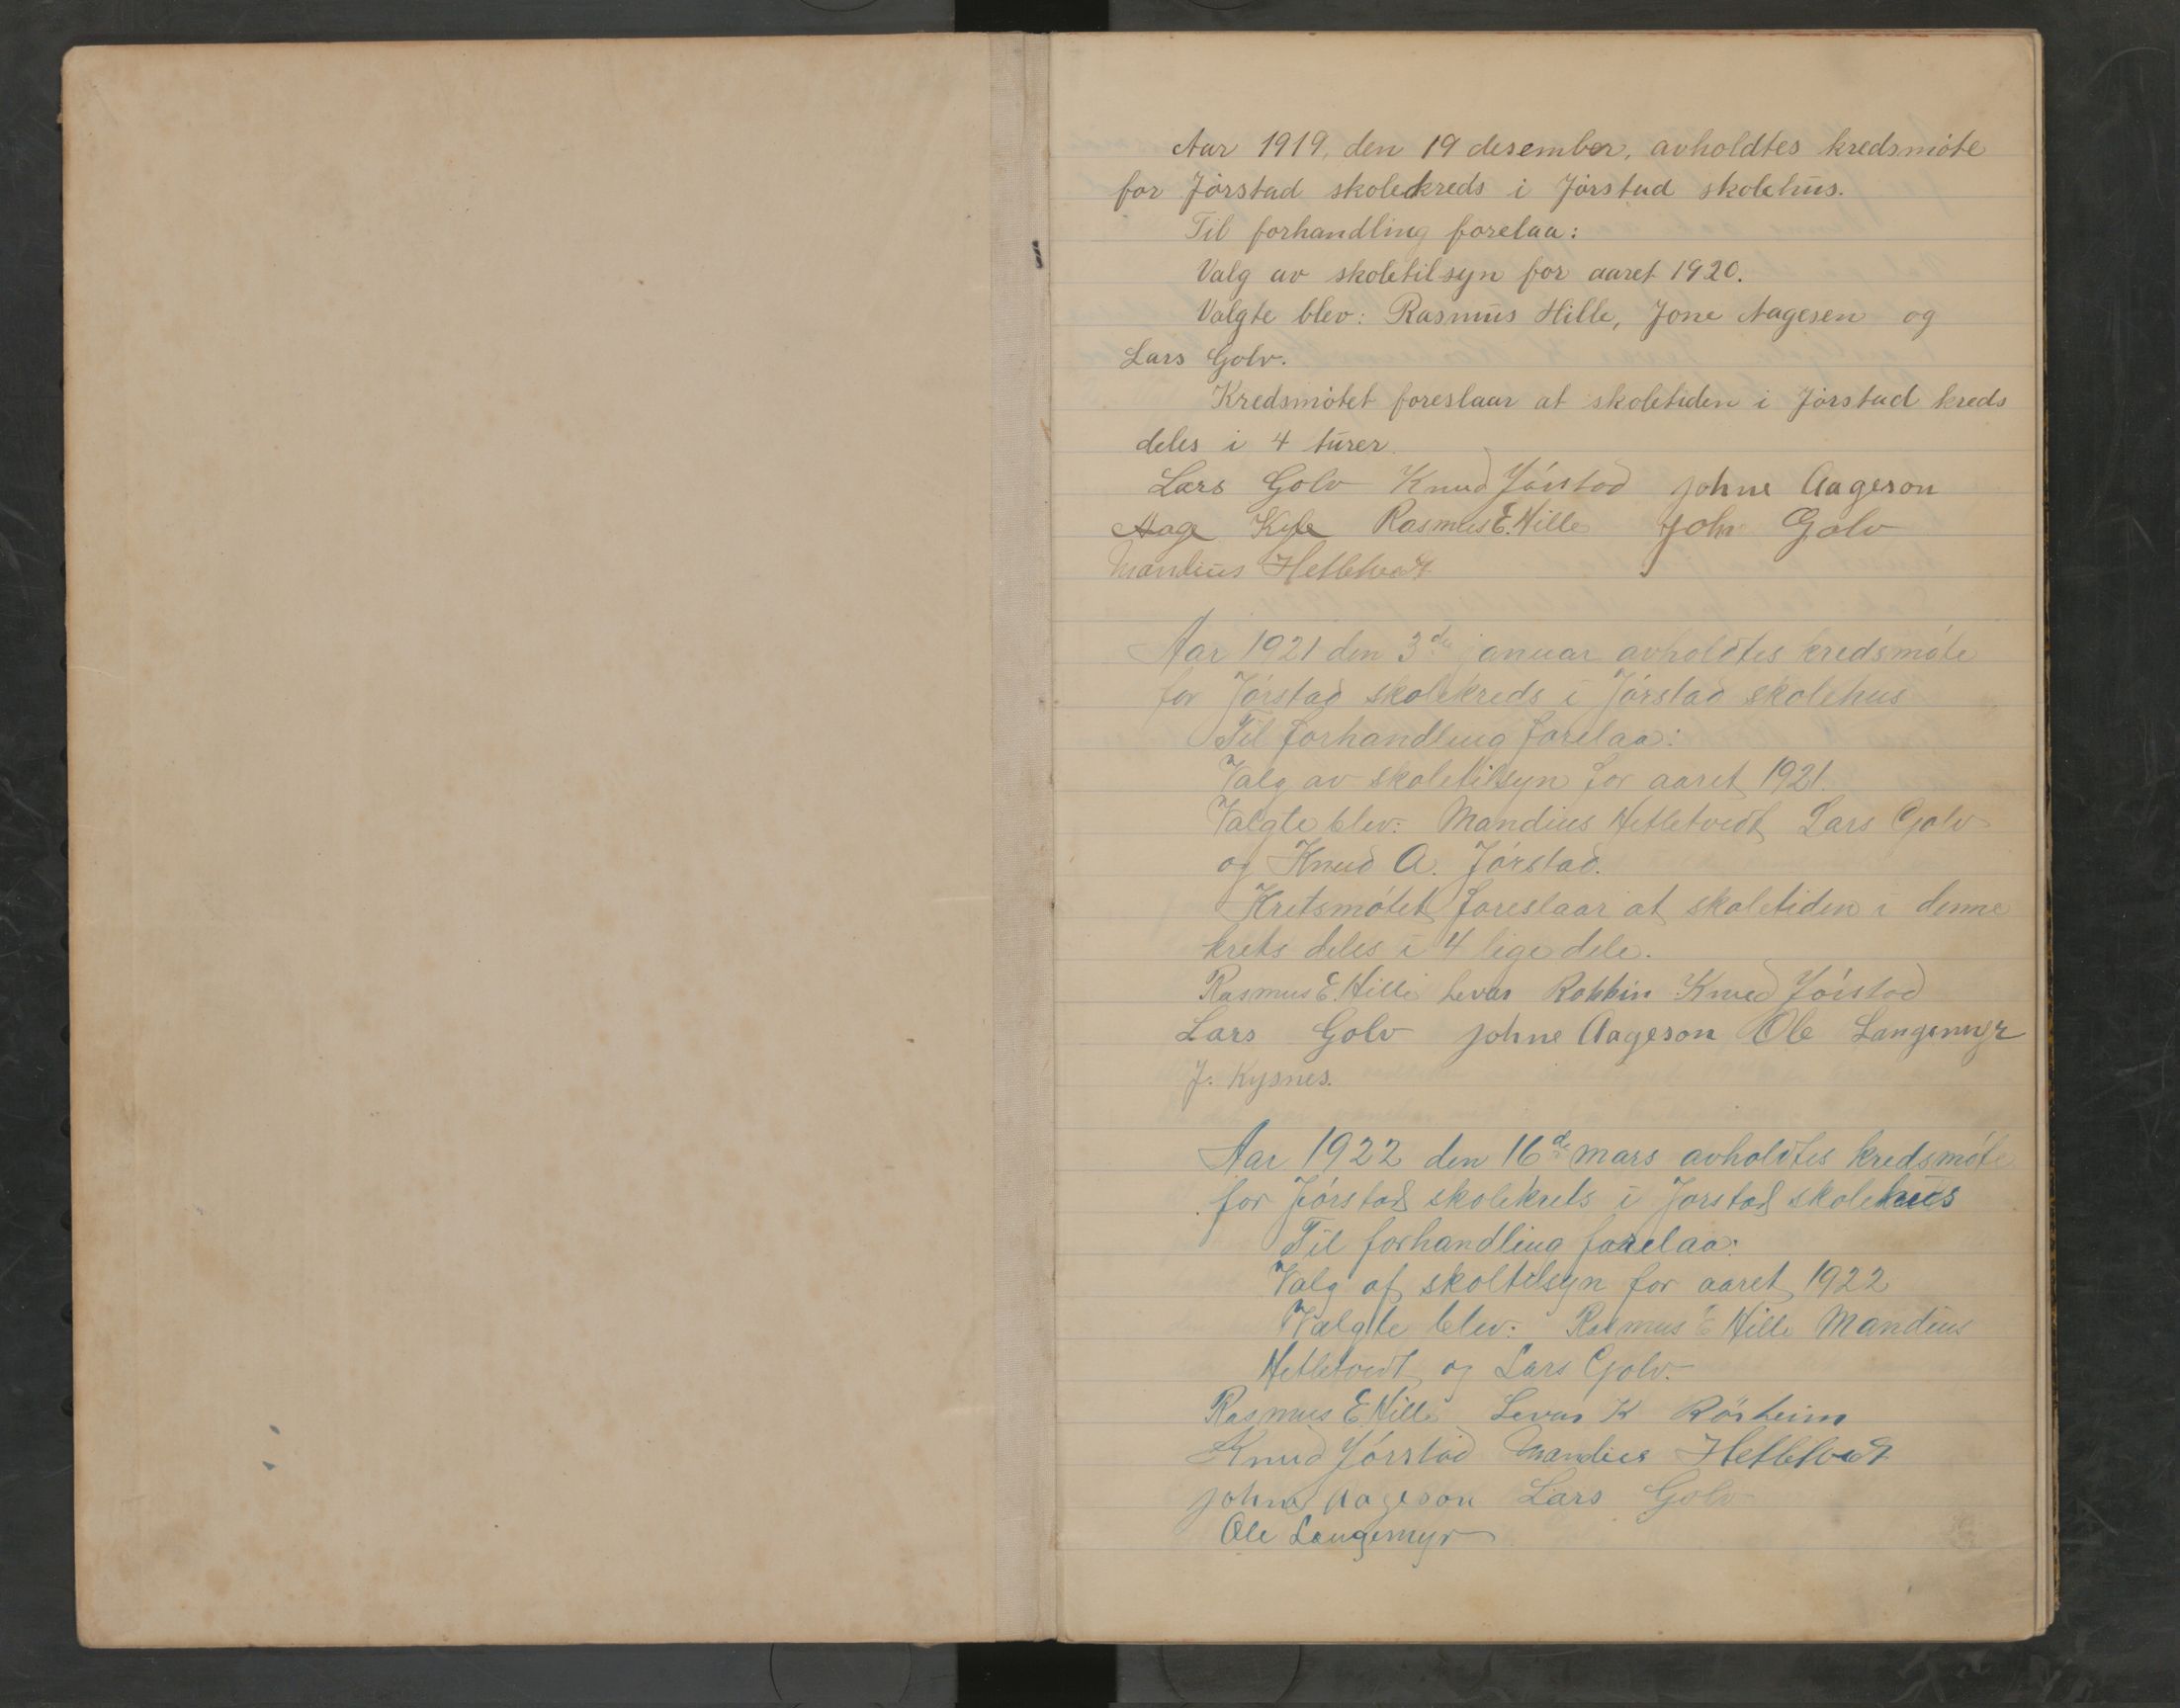 Aar 1919, den 19 desember, avholdtes kredsmöte
for Jörstad skolekreds i Jörstad skolehus.
Til forhandling forelaa:
Valg av skoletilsyn for aaret 1920.
Valgte blev: Rasmus Hille, Jone Aagesen og
Lars Golv.
Kredsmötet foreslaar at skoletiden i Jörstad kreds
deles i 4 turer.
Lars Golv Knud Jörstad Johne Aageson
Aage Rasmus E. Hille John Golv
Mandius Hetletvedt
Aar 1921 den 3de januar avholdtes kredsmöte
for Jörstad skolekreds i Jörstad skolehus
Til forhandling forelaa:
Valg av skoletilsyn for aaret 1921.
Valgte blev: Mandius Hetletvedt Lars Golv
og Knud A. Jörstad.
Kretsmötet foreslaar at skoletiden i denne
krets deles i 4 lige dele.
Rasmus E. Hille Levar Knud Jörstad
Lars Golv Johne Aageson Ole Langemyr
J. Kysnes.
Aar 1922 den 16de mars avholdtes kredsmöte
for Jörstad skolekrets i Jorstad skolehus
Til forhandling forelaa:
Valg af skoltilsyn for aaret 1922
Valgte blev: Rasmus E Hille Mandius
Hetletvedt og Lars Golv.
Rasmus E. Hille Levar K Rörheim
Knud Jörstad Mandius Hetletvedt
Johne Aageson Lars Golv
Ole Langemyr